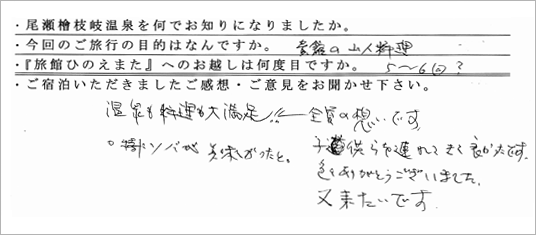 ・尾瀬檜枝岐温泉を何でお知りになりましたか。
・今回のご旅行の目的はなんですか。 貴館の山人料理
・『旅館ひのえまた』へのお越しは何度目ですか。 5〜6回？
・ご宿泊いただきましたご感想・ご意見をお聞かせ下さい。
温泉も料理も大満足!! 全員の想いです
○特にソバが美味しかったと。
子供らを連れてきて良かったです。
色々ありがとうございました。
又来たいです